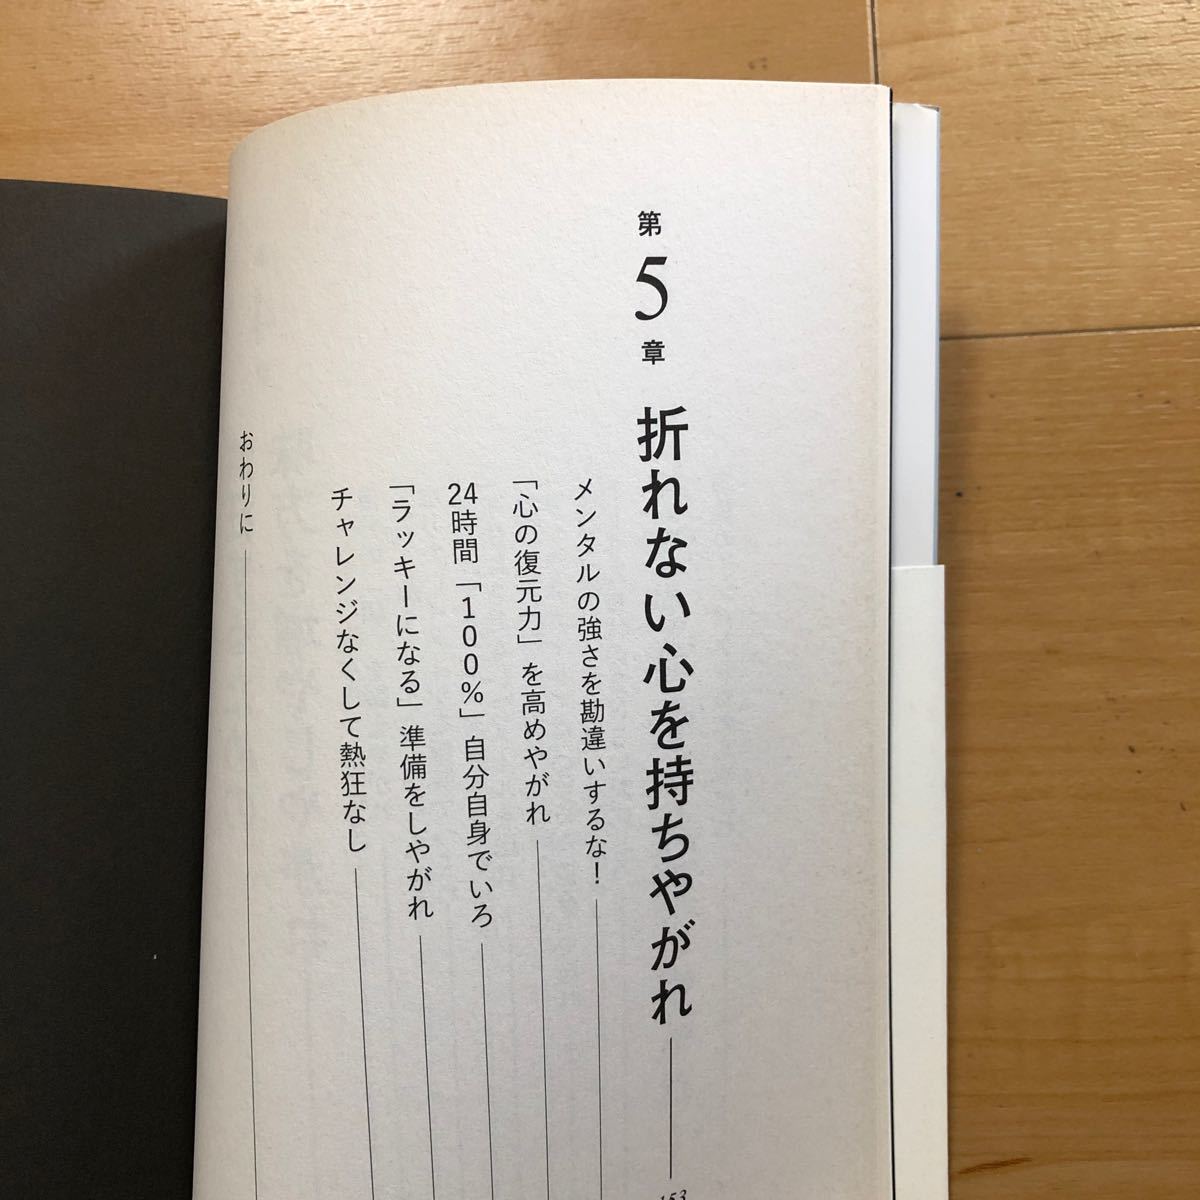 第5章 折れない心を持ちやがれ 153
メンタルの強さを勘違いするな!
「心の復元力」を高めやがれ
24時間「100%」自分自身でいろ
「ラッキーになる」準備をしやがれ
チャレンジなくして熱狂なし
おわりに